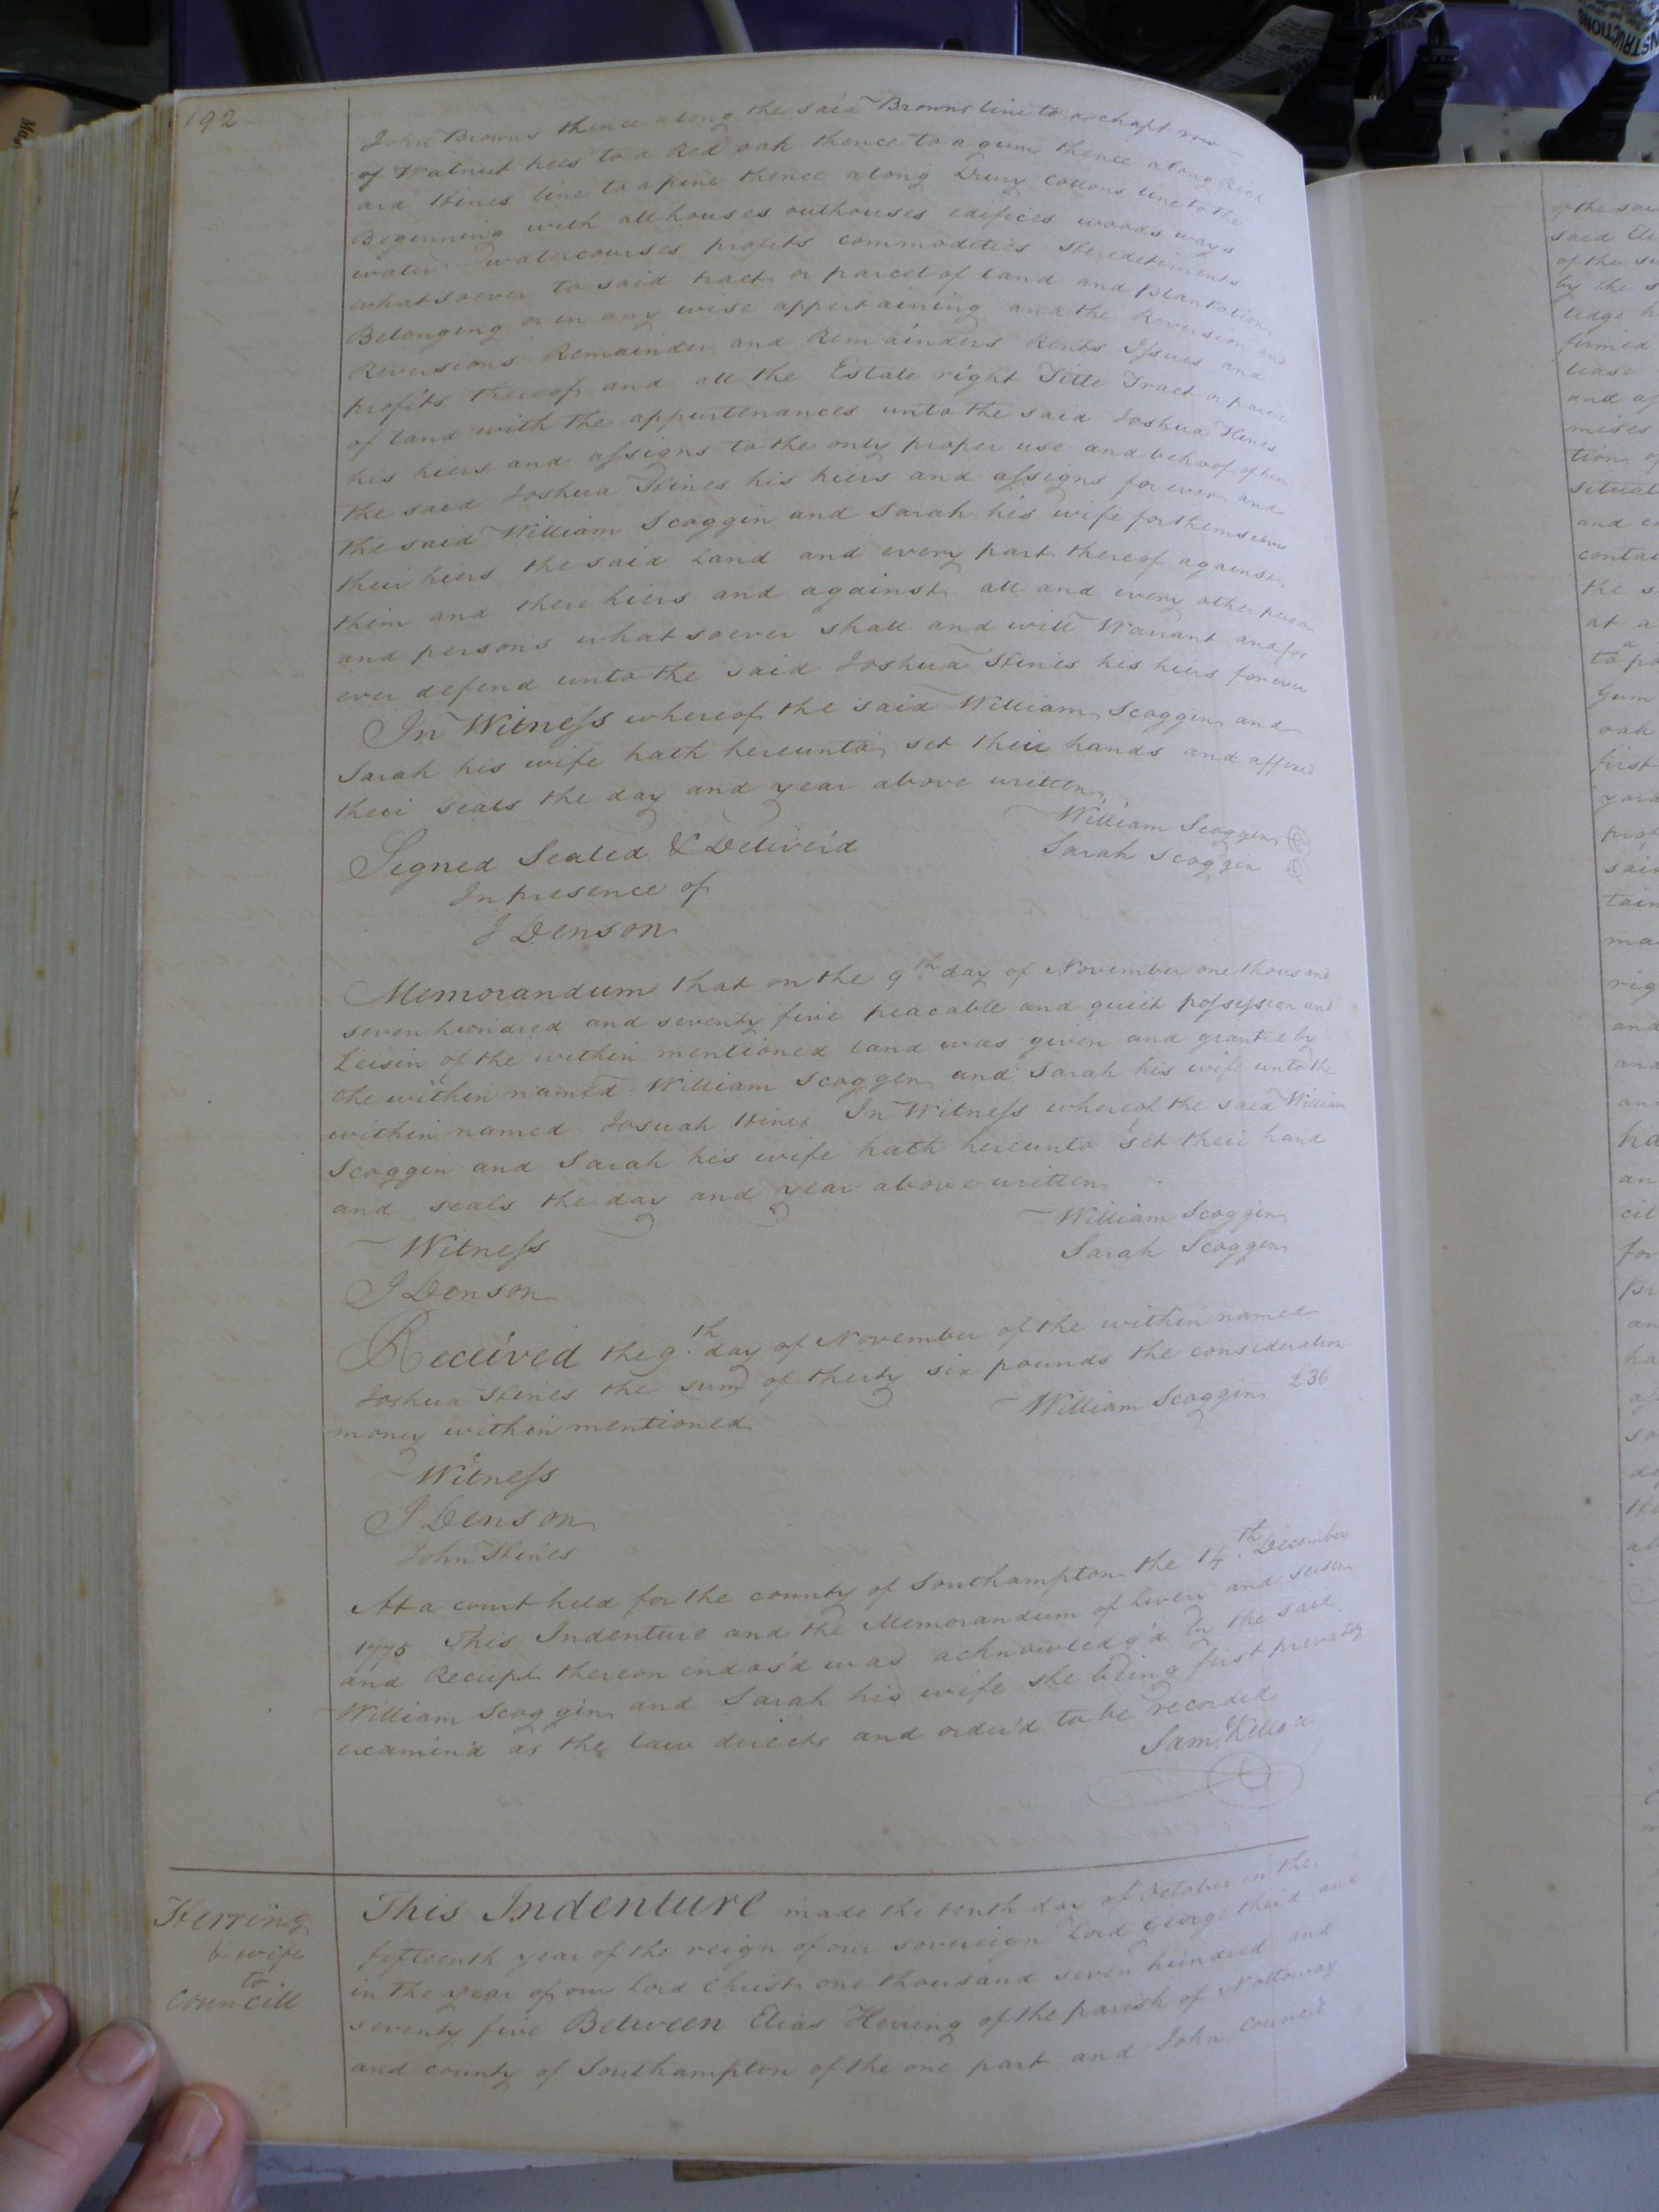 192
John Browns thence along the said Browns line to a chapt row
of Walnut trees to a Red oak thence to a gum thence along Rich
ard Hines line to a pine thence along Drury Cottons line to the
Beginning with all houses outhouses edifices woods ways
water watercourses profits commodities Heredetiments
whatsoever to said tract or parcel of land and plantation
Belonging or in any wise appertaining and the Reversion and
Reversions Remainder and Remainders Rents Issues and
profits thereof and all the Estate right Title Tract or parcel
of land with the appurtenances unto the said Joshua Hines
his hiers and assigns to the only proper use and behoof of him
the said Joshua Hines his hiers and assigns for ever and
the said William Scoggin and Sarah his wife for themselves
their hiers the said Land and every part thereof against
them and there hiers and against all and every other person
and persons whatsoever shall and will Warrant and for
ever defend unto the said Joshua Hines his hiers for ever
In Witness whereof the said William Scoggin and
Sarah his wife hath hereunto set their hands and affixed
their seals the day and year above written
William Scoggin
Sarah Scoggin
Signed Sealed & Deliver'd
In presence of
J Denson
Memorandum that on the 9th day of November one thousand
seven hundred and seventy five peacable and quiet possession and
Seisin of the within mentioned land was given and granted by
the within named William Scoggin and Sarah his wife unto the
within named Josuah Hines In Witness whereof the said William
Scoggin and Sarah his wife hath hereunto set their hand
and seals the day and year above written
William Scoggin
Sarah Scoggin
Witness
J Denson
Received the 9th day of November of the within named
Joshua Hines the sum of thirty six pounds the consideration
money within mentioned
William Scoggin £36
Witness
J Denson
John Hines
At a court held for the county of Southampton the 14th December
1775 This Indenture and the Memorandum of Livery and seisen
and Receipt thereon endors'd was acknowledg'd by the said
William Scoggin and Sarah his wife she being first privately
examin'd as the law directs and order'd to be recorded
Sam. Kello
Herring
& wife
to
Councill
This Indenture made the tenth day of October in the
fifteenth year of the reign of our sovereign Lord George third and
in the year of our Lord Christ one thousand seven hundred and
seventy five Between Elias Herring of the parish of Nottoway
and county of Southampton of the one part and John Councill